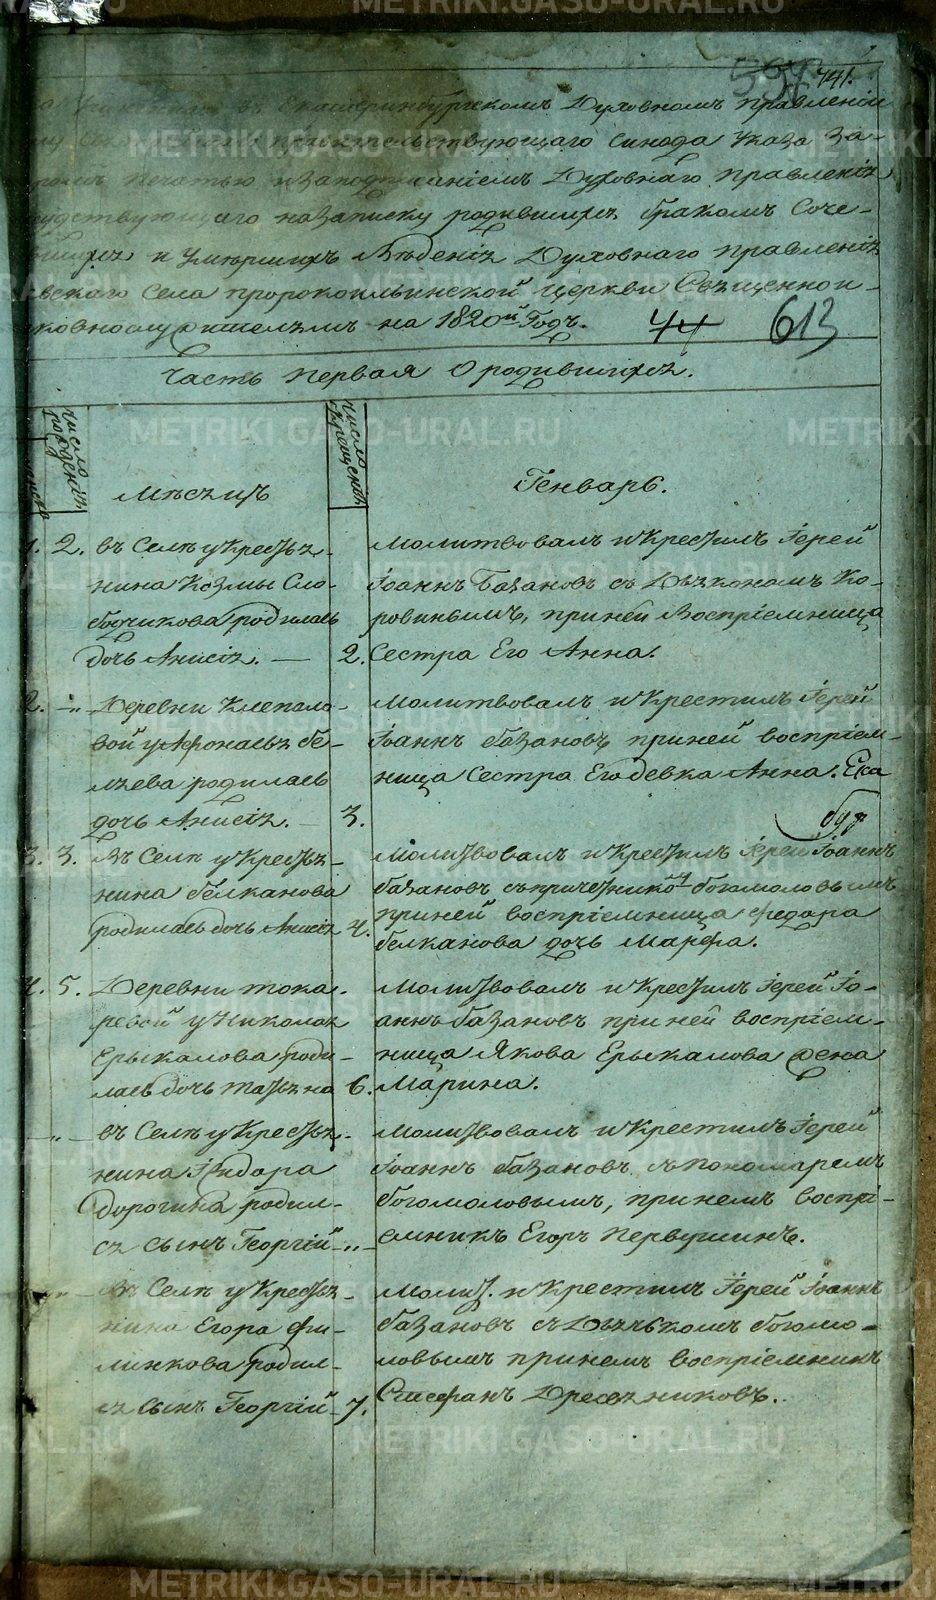 441.
въ Екатеринбургскомъ Духовномъ правленіи
правительствующаго Синода указа за-
печатью и заподписаніемъ Духовнаго правленія
назаписку родившихъ бракомъ соче-
и умершихъ Вѣденія Духовнаго правленія
села пророкоильинской церкви Священно и
на 1820й Годъ. 44 613
Часть первая О родившихъ.
число рожденія
число крещенія
мѣсяцъ
Генварь.
1. 2. въ Селѣ у Крестья-
нина Козмы Сло-
бодчикова родилась
дочь Анисія. — 2.
Молитвовалъ и Крестилъ Іерей
Іоаннъ Базановъ съ Дьякономъ Ко-
ровинымъ, приней Воспріемница
Сестра Его Анна.
2. -"- Деревни Клепало-
вой у Афонасья бе-
ляева родилась
дочь Анисія. — 3.
Молитвовалъ и Крестилъ Іерей
Іоаннъ базановъ приней воспріем-
ница Сестра Его девка Анна.
3. 3. Въ Селѣ у Крестья-
нина белканова
родилась дочь Анисія 4.
Молитвовалъ и Крестилъ Іерей Іоаннъ
базановъ съ причетникомъ богомоловымъ
приней воспріемница федора
белканова дочь Марфа.
4. 5. Деревни тока-
ревой у Николая
Ерыкалова роди-
лась дочь татьяна 6.
Молитвовалъ и Крестилъ Іерей Іо-
аннъ базановъ приней воспріем-
ница Якова Ерыкалова жена
Марина.
-"- въ Селѣ у Крестья-
нина Исидора
Дорогина родил-
ся сынъ Георгій -"-
Молитвовалъ и Крестилъ Іерей
Іоаннъ базановъ съ пономаремъ
богомоловымъ, принемъ воспрі-
емникъ Егоръ Первушинъ.
-"- въ Селѣ у Крестья-
нина Егора фи-
линкова родил-
ся Сынъ Георгій 7.
Молит. и Крестилъ Іерей Іоаннъ
базановъ съ Дьячькомъ богомо-
ловымъ принемъ воспріемникъ
Стефанъ Дресвянниковъ.
METRIKI.GASO-URAL.RU